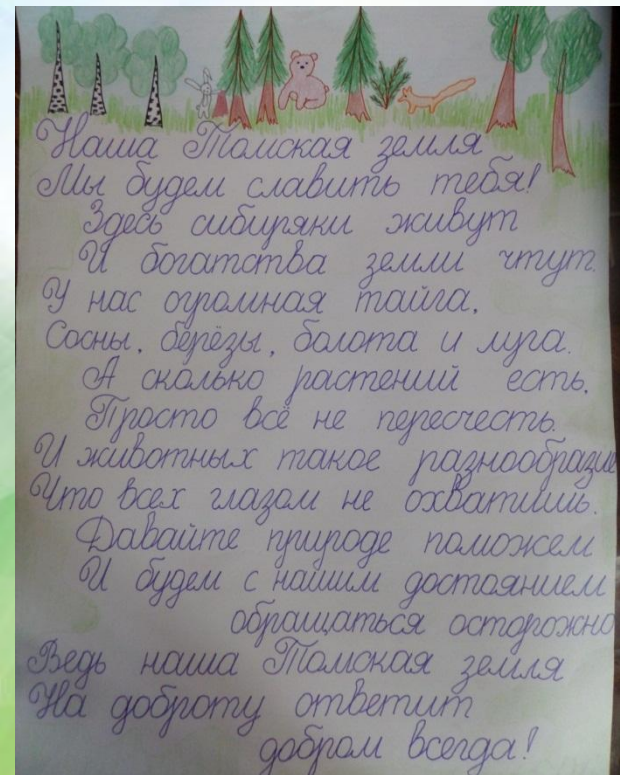 Наша Томская земля
Мы будем славить тебя!
Здесь сибиряки живут
И богатства земли чтут.
У нас огромная тайга,
Сосны, берёзы, болота и луга.
А сколько растений есть,
Просто всё не пересчесть.
И животных такое разнообразие
Что всех глазом не охватишь.
Давайте природе поможем
И будем с нашим достоянием
обращаться осторожно
Ведь наша Томская земля
На доброту ответит
добром всегда!